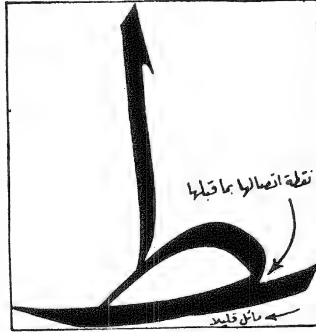 ط
نقطة اتصالها بما قبلها
مائل قليلا